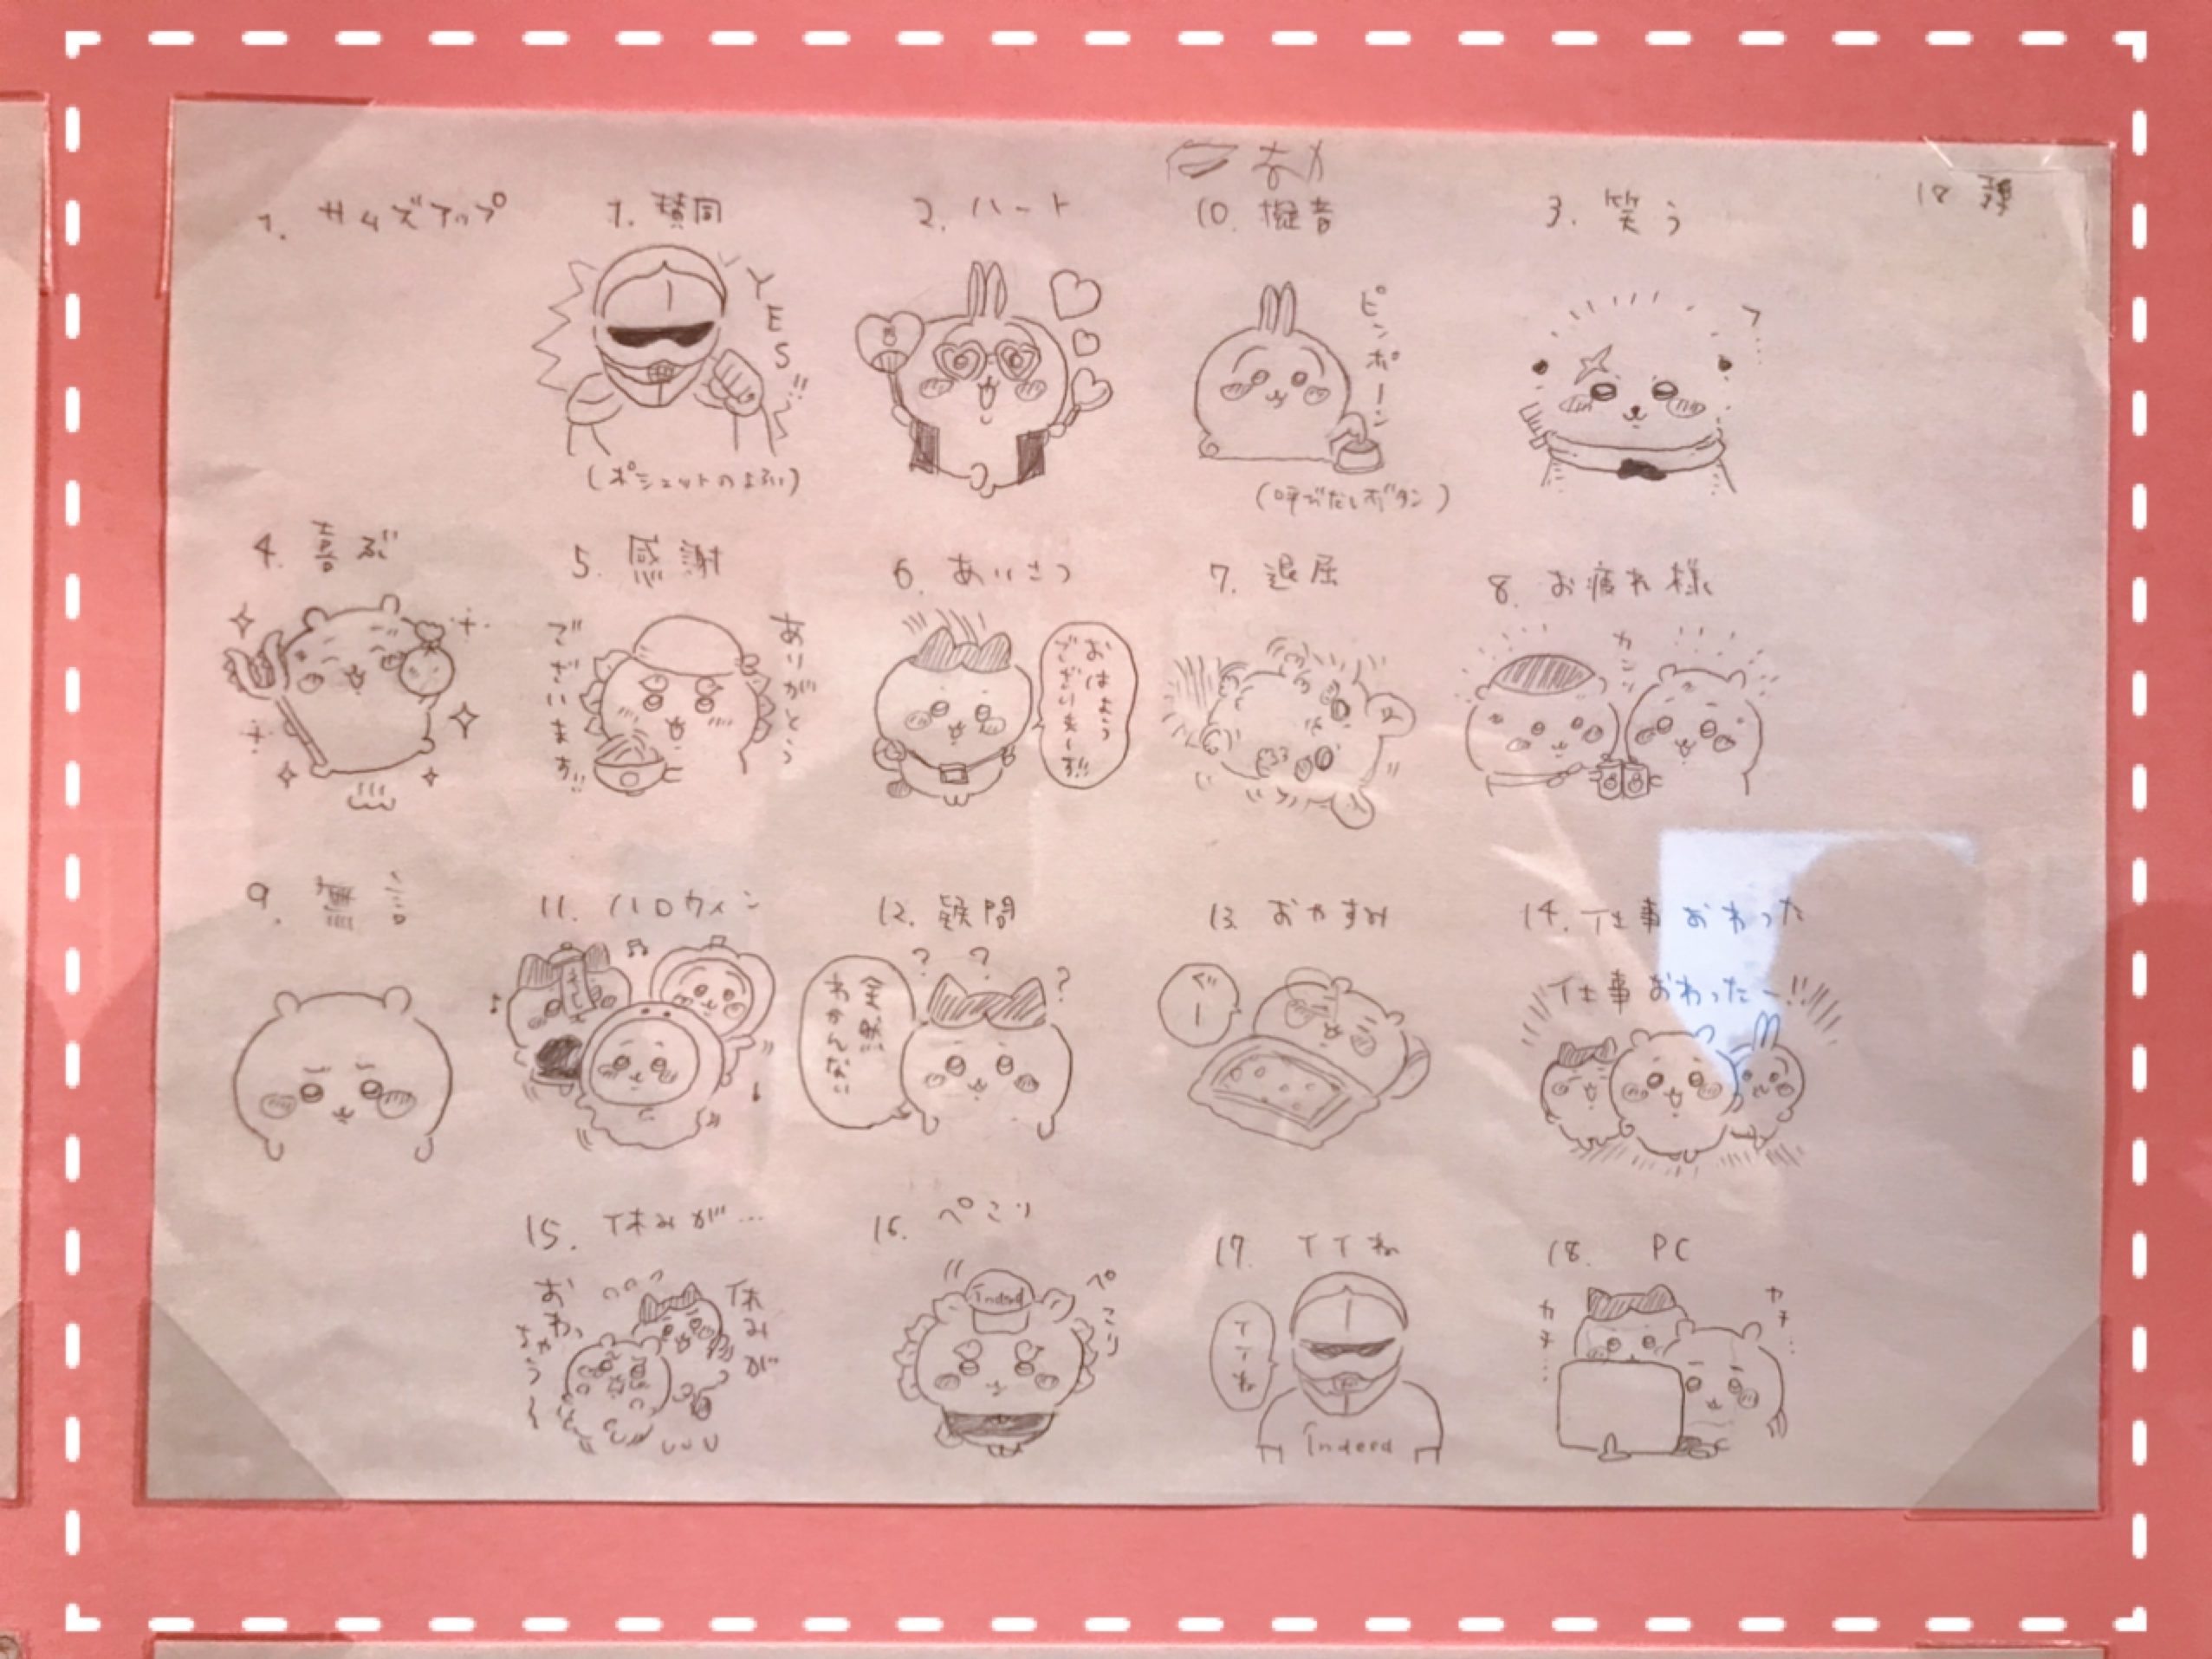 1. サムズアップ
1. 賛同
2. ハート
10. 擬音
3. 笑う
YES!!
(ポシェットのよろい)
ピンポーン
(呼びだしボタン)
4. 喜ぶ
5. 感謝
6. あいさつ
7. 退屈
8. お疲れ様
ありがとう
ございます!!
おはよう
ございま〜す!!
カンッ
9.
11. ハロウィン
12. 疑問
13 おやすみ
14. 仕事おわった
全然
わかんない
???
ぐー
仕事おわったー!!
15. 休みが…
16. ぺこり
17. イイね
18. PC
休みが
おわっ
ちゃう〜
ぺこり
Indeed
イイね
Indeed
カチ…
カチ…